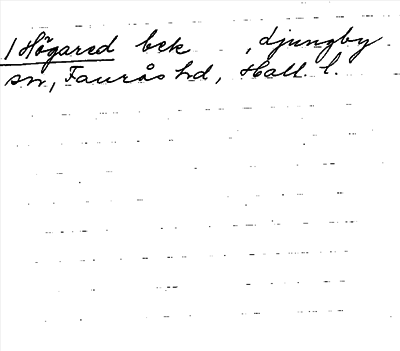 1 Högared bek , Ljungby
sn, Faurås hd, Hall. l.